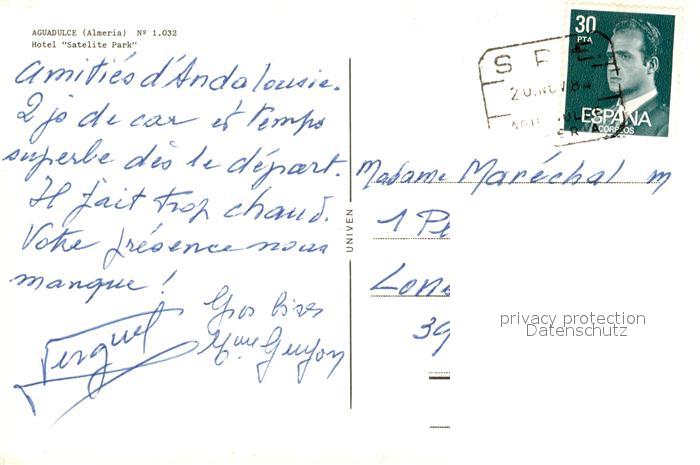 AGUADULCE (Almería) Nº 1.032
Hotel "Satelite Park"
Amitiés d'Andalousie.
2 js de car et temps
superbe dès le départ.
Il fait trop chaud.
Votre présence nous
manque !
Gros bises
Mme Guyon
UNIVEN
30
PTA
ESPAÑA
CORREOS
20 NOV 84
Madame Maréchal m
1 Pe
Lon
39
privacy protection
Datenschutz